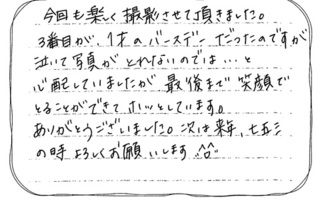 今回も楽しく撮影させて頂きました。
3番目が、1才のバースデーだったのですが
泣いて写真がとれないのでは…と
心配していましたが最後まで笑顔で
とることができてホッとしています。
ありがとうございました。次は来年、七五三
の時よろしくお願いします ^^